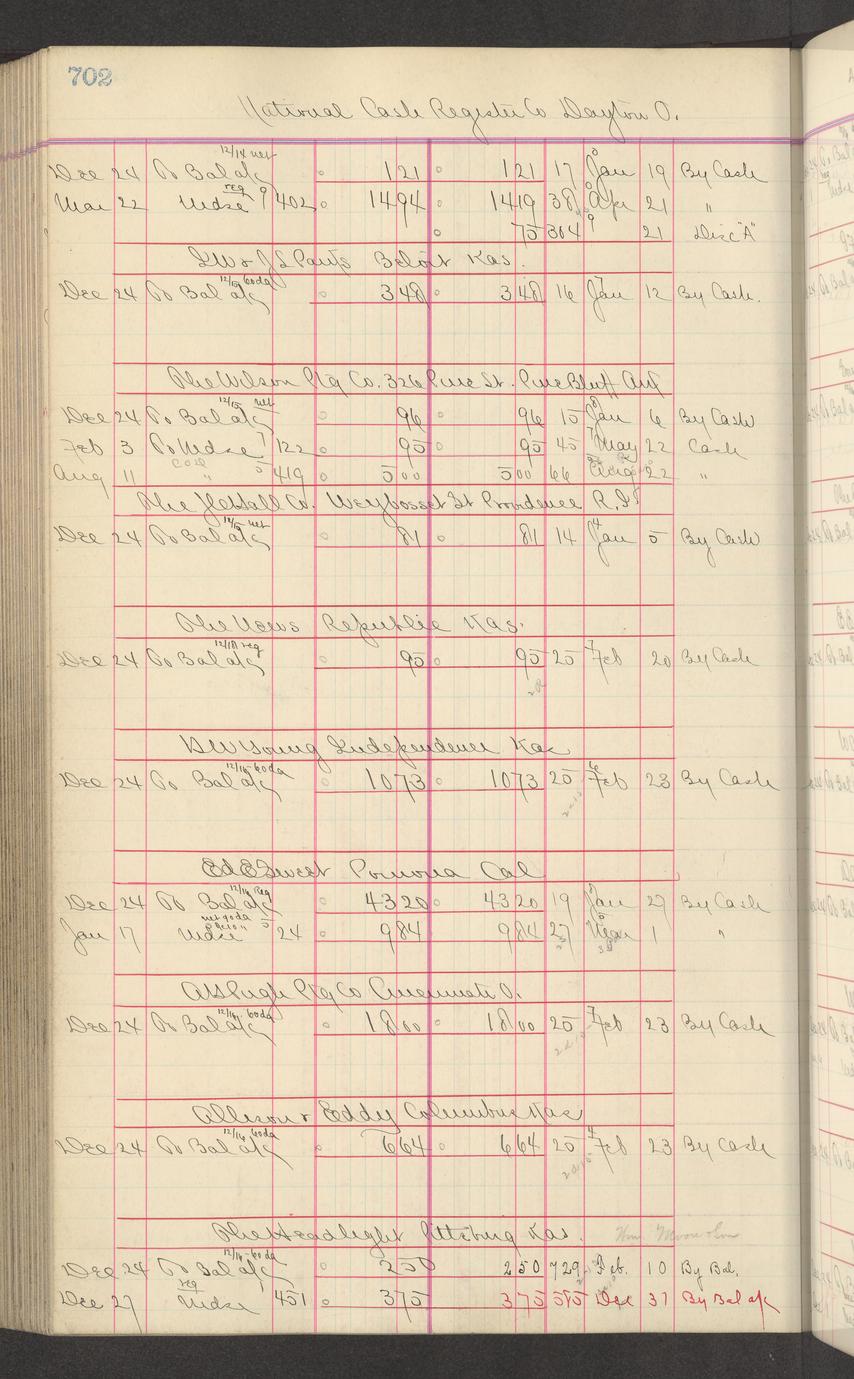 702
National Cash Register Co Dayton O.
12/14 net
Dec 24 To Bal a/c 121 121 17 Jan 19 By Cash
Mar 22 Mdse reg 9 402 1494 1419 38 Apr 21 "
75 304 21 Disc "A"
Beloit Kas.
Dec 24 To Bal a/c 12/15 60da 348 348 16 Jan 12 By Cash.
The Wilson Ptg Co. 326 Pine St. Pine Bluff Ark
Dec 24 To Bal a/c 12/15 net 96 96 15 Jan 6 By Cash
Feb 3 To Mdse 7 122 95 95 45 May 22 Cash
Aug 11 " 5 419 500 500 66 Aug 22 "
The Hall Co. Weybosset St Providence R.I.
Dec 24 To Bal a/c net 81 81 14 Jan 5 By Cash
The News Republic Kas.
Dec 24 To Bal a/c 12/18 reg 95 95 25 Feb 20 By Cash
B W Young Independence Kas
Dec 24 To Bal a/c 12/15 60da 1073 1073 25 Feb 23 By Cash
Ed E Sweet Pomona Cal
Dec 24 To Bal a/c 12/16 Reg 4320 4320 19 Jan 27 By Cash
Jan 17 Mdse 5 24 984 984 27 Mar 1 "
A H Pugh Ptg Co Cincinnati O.
Dec 24 To Bal a/c 12/16 60da 1800 1800 25 Feb 23 By Cash
Allison & Eddy Columbus Kas
Dec 24 To Bal a/c 12/16 60da 664 664 25 Feb 23 By Cash
The Headlight Pittsburg Kas.
Dec 24 To Bal a/c 12/16 60da 250 250 729 Feb. 10 By Bal.
Dec 27 Mdse reg 1 451 375 375 585 Dec 31 By Bal a/c